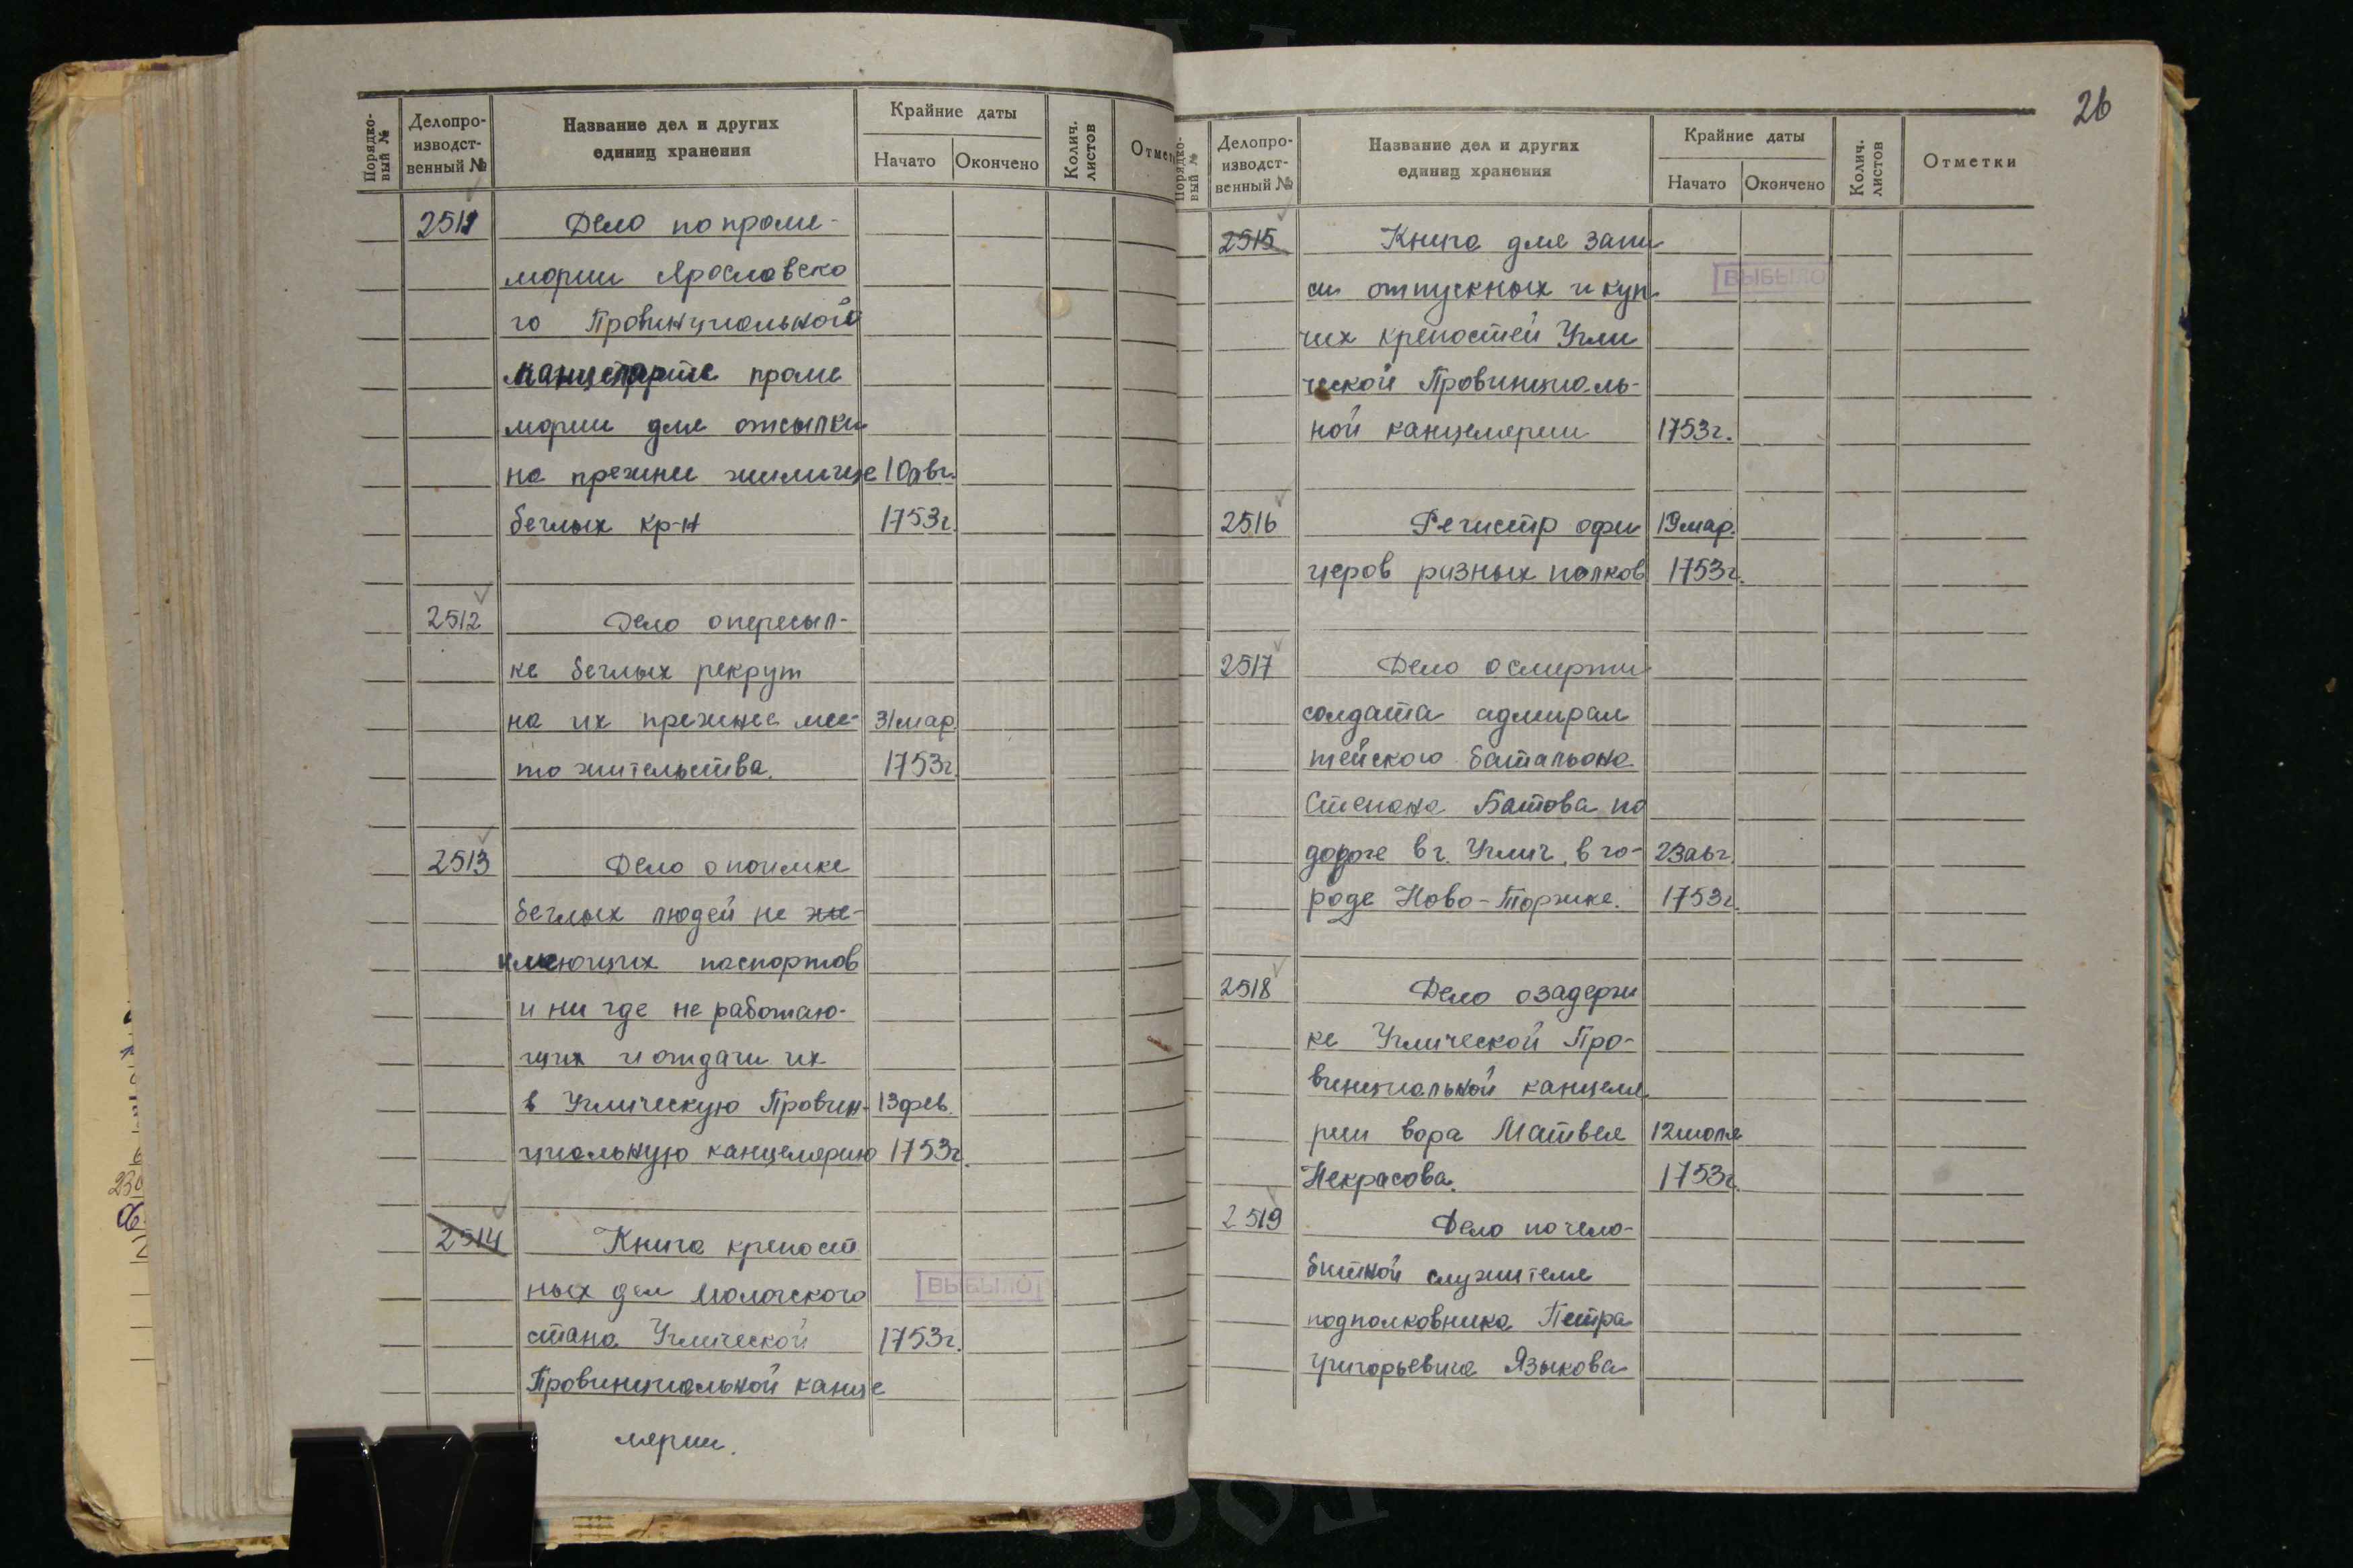 Порядко-
вый №
Делопро-
изводст-
венный №
Название дел и других
единиц хранения
Крайние даты
Начато
Окончено
Колич.
листов
Отмет
2511
Дело по проме-
мории Ярославско
го Провинциальной
канцелярие проме
мории для отсылки
на прежни жилище 10 авг.
беглых кр-н 1753г.
2512
Дело о пересыл-
ке беглых рекрут
на их прежнее мес- 31 мар.
то жительства. 1753г.
2513
Дело о поимке
беглых людей не
имеющих паспортов
и ни где не работаю-
щих и отдачи их
в Углическую Провин- 13 фев.
циальную канцелярию 1753г.
2514
Книга крепост
ных дел Мологского
ВЫБЫЛО
стана Углической 1753г.
Провинциальной канце
лярии.
26
Порядко-
вый №
Делопро-
изводст-
венный №
Название дел и других
единиц хранения
Крайние даты
Начато
Окончено
Колич.
листов
Отметки
2515
Книга для запи
ВЫБЫЛО
си отпускных и куп
чих крепостей Угли
ческой Провинциаль-
ной канцелярии 1753г.
2516
Регистр офи 19 мар.
церов разных полков 1753г.
2517
Дело о смерти
солдата адмирал
тейского батальона
Степана Батова по
дороге в г. Углич, в го- 23 авг.
роде Ново-Торжке. 1753г.
2518
Дело о задерж
ке Углической Про-
винциальной канцеля
рии вора Матвея 12 июля
Некрасова. 1753г.
2519
Дело по чело-
битной служителя
подполковника Петра
Григорьевича Языкова